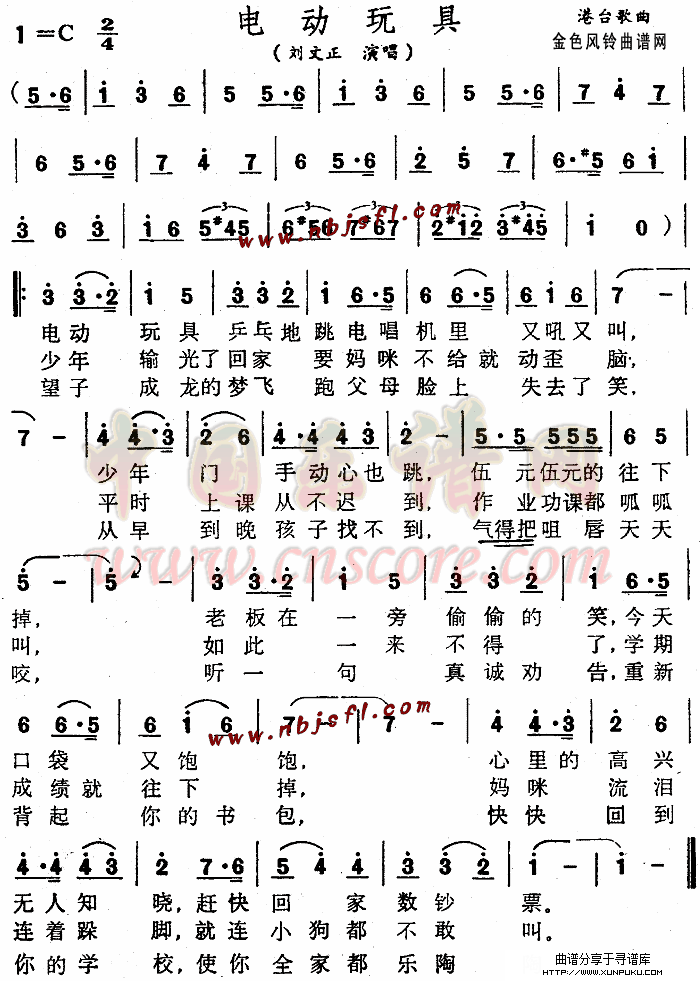 电动玩具
1=C 2/4
(刘文正 演唱)
港台歌曲
金色风铃曲谱网
( 5·6 | i 3 6 | 5 5·6 | i 3 6 | 5 5·6 | 7 4 7 |
6 5·6 | 7 4 7 | 6 5·6 | 2 5 7 | 6·#5 6 i |
3 6 3 | i 6 5#45 | 6#56 7#67 | 2#12 3#45 | i 0 )
www.nbjsfl.com
‖: 3 3·2 | i 5 | 3 3 2 | i 6·5 | 6 6·5 | 6 i 6 | 7 - |
电动 玩具乒乓地跳电唱机里 又吼又叫,
少年 输光了回家 要妈咪不给就动歪 脑,
望子 成龙的梦飞 跑父母脸上 失去了笑,
7 - | 4 4·3 | 2 6 | 4·4 4 3 | 2 - | 5·5 555 | 6 5 |
少年 门 手动心也跳, 伍元伍元的往下
平时 上课从不迟 到, 作业功课都呱呱
从早 到晚孩子找不到, 气得把咀唇天天
中国曲谱网
www.cnscore.com
5 - | 5 - | 3 3·2 | i 5 | 3 3 2 | i 6·5 |
掉, 老板在一旁偷偷的 笑,今天
叫, 如此 一来不得 了,学期
咬, 听一 句 真诚劝 告,重新
6 6·5 | 6 i 6 | 7 - | 7 - | 4 4·3 | 2 6 |
www.nbjsfl.com
口袋 又饱 饱, 心里的高兴
成绩就往下 掉, 妈咪 流泪
背起 你的书 包, 快快 回到
4·4 4 3 | 2 7·6 | 5 4 4 | 3 3 2 | i - | i - :‖
无人知 晓,赶快回 家数钞 票。
连着跺 脚,就连小狗都不敢 叫。
你的学 校,使你全家都乐陶
曲谱分享于寻谱库
HTTP://WWW.XUNPUKU.COM